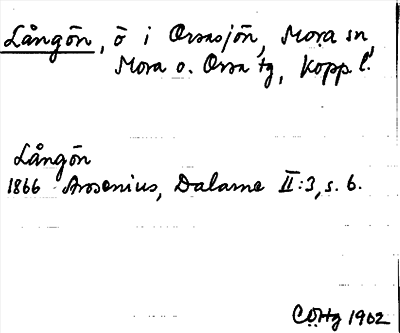 Långön, ö i Orsasjön, Mora sn,
Mora o. Orsa tg, Kopp l.
Långön
1866 Arosenius, Dalarne II:3, s. 6.
CÖHg 1902